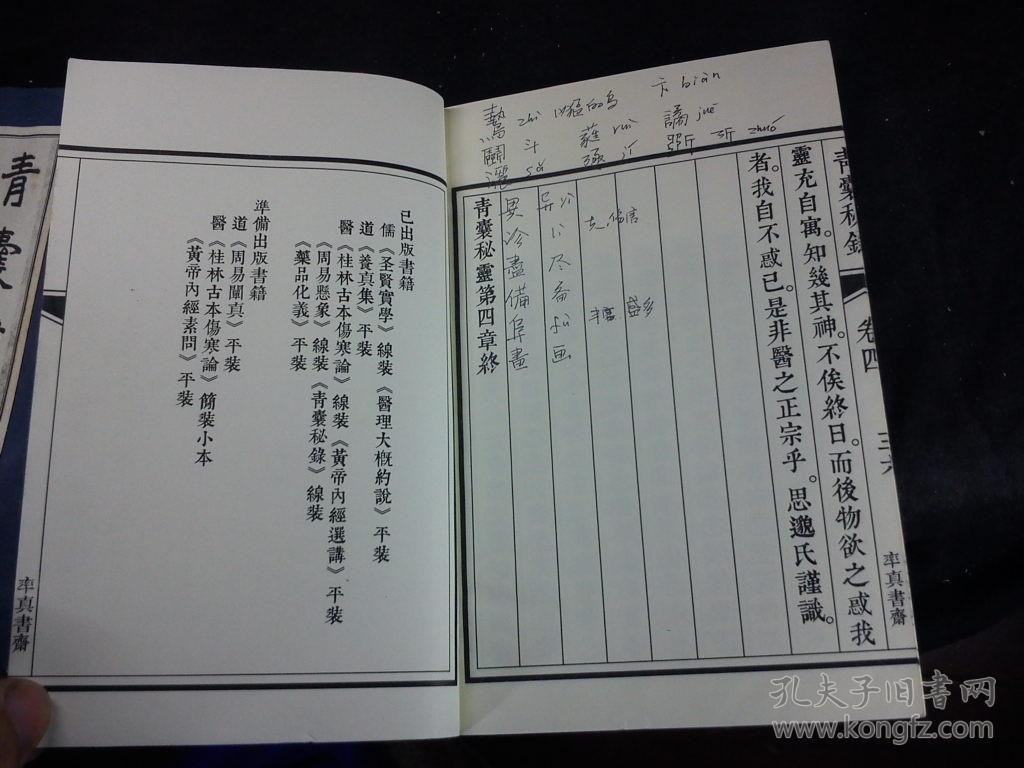 青囊秘錄 卷四 三六 率真書齋
靈充自寓。知幾其神。不俟終日。而後物欲之惑我
者。我自不惑已。是非醫之正宗乎。思邈氏謹識。
青囊秘靈第四章終
卞 biàn
譎 jué
斲 斫 zhuó
鷙 zhì 凶猛的鸟
鬭 斗
蕤 ruí
异
盡 尽
備 备
阜 fù
畫 画
丰富 盛多
已出版書籍
儒《圣賢實學》線裝《醫理大概約說》平裝
道《養真集》平裝
醫《桂林古本傷寒論》線裝《黃帝內經選講》平裝
《周易懸象》線裝《青囊秘錄》線裝
《藥品化義》平裝
準備出版書籍
道《周易闡真》平裝
醫《桂林古本傷寒論》簡裝小本
《黃帝內經素問》平裝
率真書齋
青囊
孔夫子旧书网
www.kongfz.com